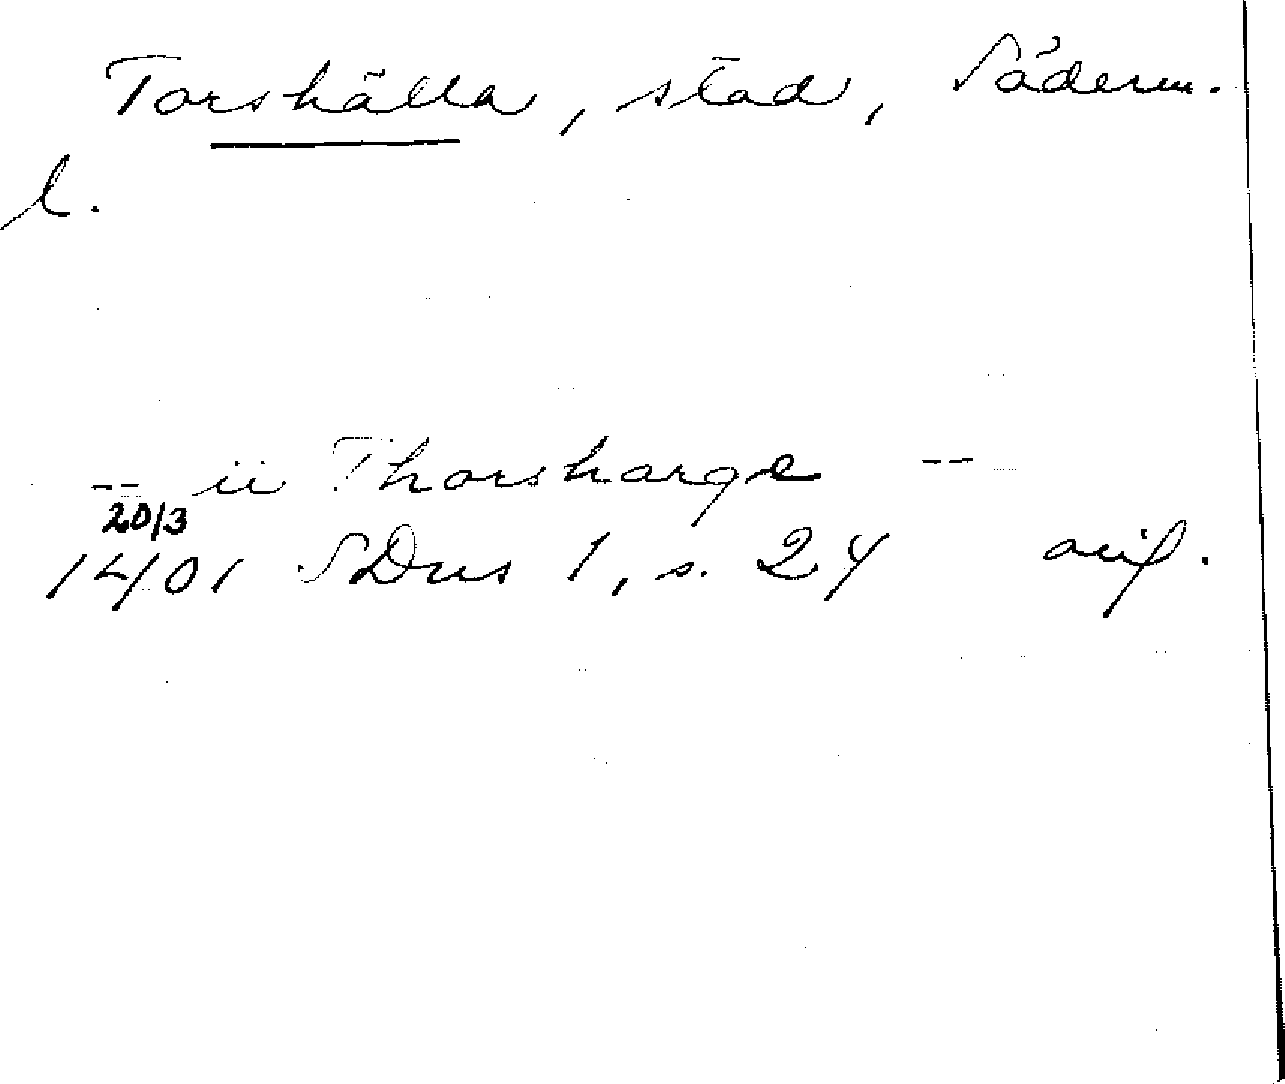 Torshälla, stad, Söderm.
l.
-- ii Thorsharge --
20/3
1401 SDns 1, s. 24 avif.